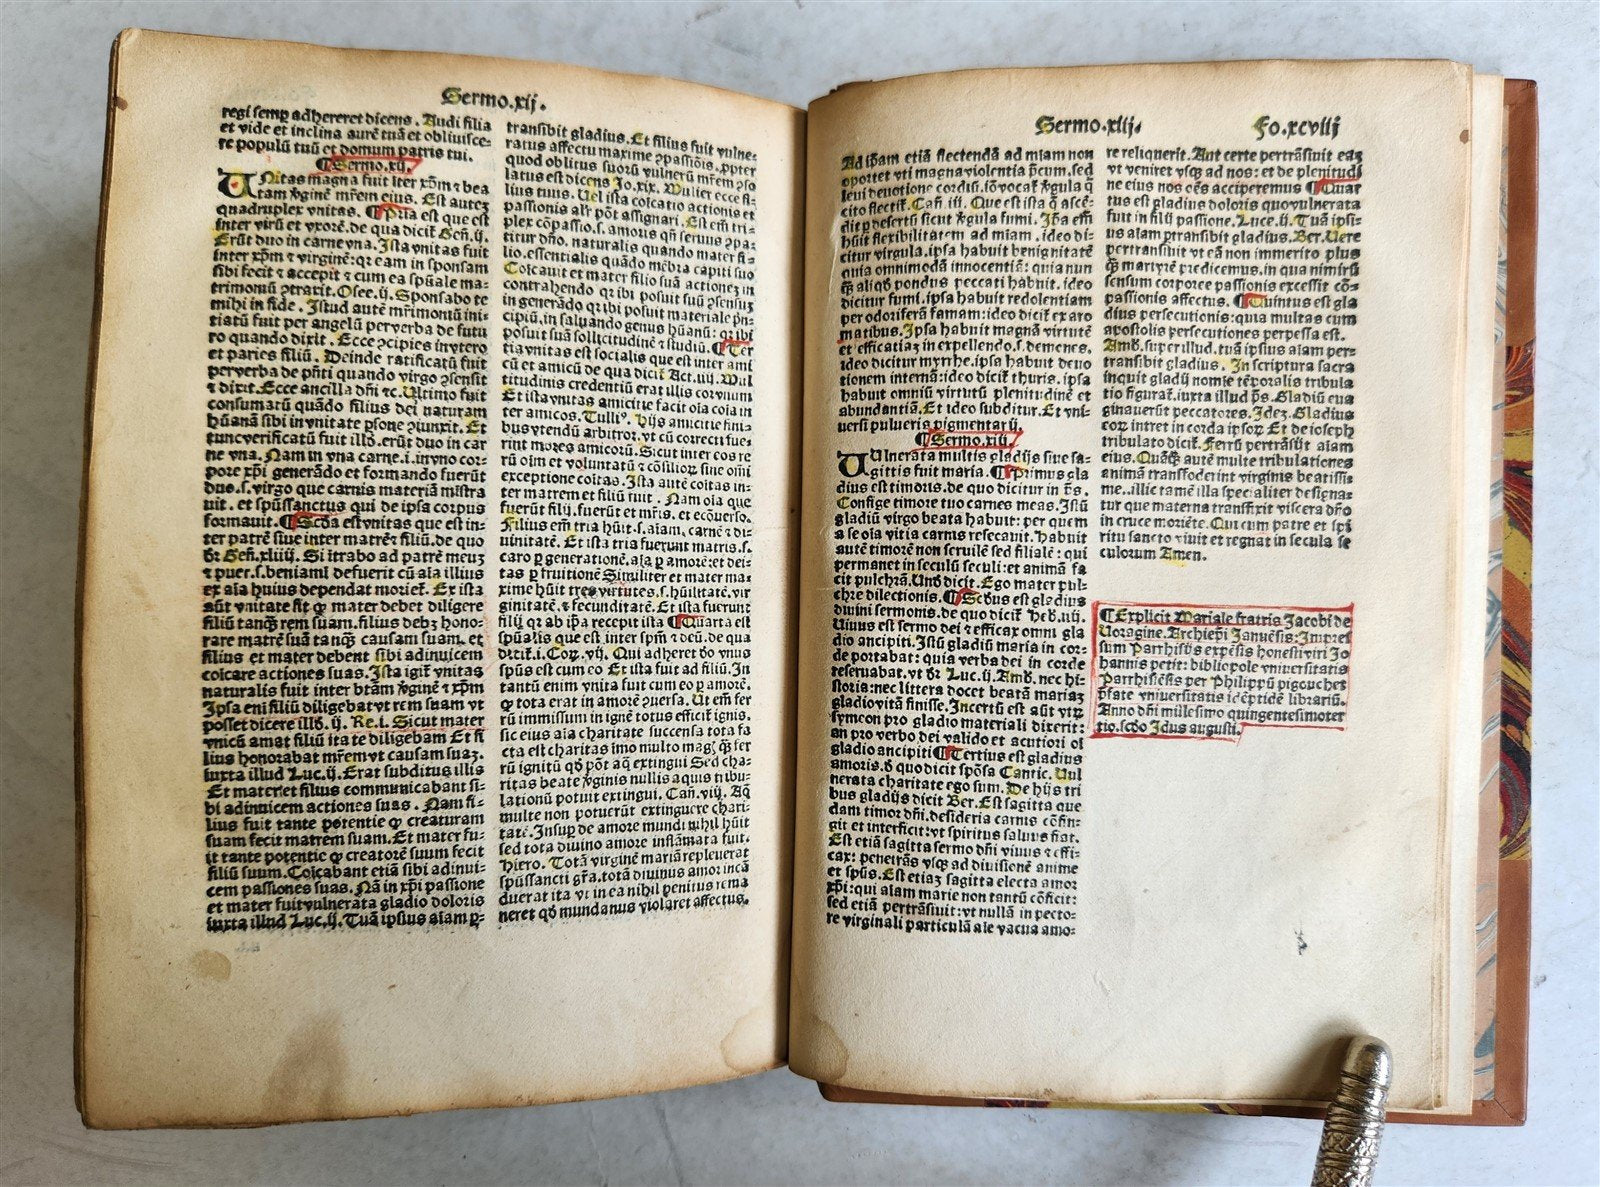 Sermo.xij.
regi semꝑ adhereret dicens. Audi filia
et vide et inclina aurē tuā et obliuisce-
re populū tuū et domum patris tui.
¶ Sermo.xij.
UNitas magna fuit iter xp̄m ⁊ bea
tam v̓ginē mr̄em eius. Est autez
quadruplex vnitas. ¶ Pria est que est
inter virū et vxorē. de qua dicit̄ Gen̄.ij.
Erūt duo in carne vna. Ista vnitas fuit
inter xp̄m ⁊ virginē: qꝛ eam in sponsam
sibi fecit ⁊ accepit ⁊ cum ea sp̄uale ma-
trimoniū ꝯtraxit. Osee.ij. Sponsabo te
mihi in fide. Istud autē mr̄imoniū ini-
tiatū fuit per angelū per verba de futu
ro quando dixit. Ecce ꝯcipies in vtero
et paries filiū. Deinde ratificatū fuit
per verba de pn̄ti quando virgo ꝯsensit
⁊ dixit. Ecce ancilla dn̄i ⁊c. Ultimo fuit
consumatū quādo filius dei naturam
hūanā sibi in vnitate psone ꝯiunxit. Et
tunc verificatū fuit illd̄. erūt duo in car
ne vna. Nam in vna carne.i. in vno cor-
pore xp̄i generādo et formando fuerūt
duo.s. virgo que carnis materiā mīstra
uit. et spūssanctus qui de ipsa corpus
formauit. ¶ Scd̄a est vnitas que est in-
ter patrē siue inter matrē ⁊ filiū. de quo
dr̄ Gen̄.xliiij. Si ītrabo ad patrē meuz
⁊ puer.s. beniamī defuerit cū aīa illius
ex aīa huius dependat moriet̄. Ex ista
aūt vnitate fit ꝙ mater debet diligere
filiū tanqꝫ rem suam. filius debꝫ hono-
rare matrē suā tanqꝫ causam suam. et
filius et mater debent sibi adinuicem
coīcare actiones suas. Ista igit̄ vnitas
naturalis fuit inter btām v̓ginē ⁊ xp̄m
Ipsa eni filiū diligebat vt rem suam vt
posset dicere illd̄.ij. Re.i. Sicut mater
vnicū amat filiū ita te diligebam Et fi
lius honorabat mr̄em vt causam suaz.
iuxta illud Luc.ij. Erat subditus illis
Et mater et filius communicabant si-
bi adinuicem actiones suas. Nam fi-
lius fuit tante potentie ꝙ creaturam
suam fecit matrem suam. Et mater fu-
it tante potentie ꝙ creatorē suum fecit
filiū suum. Coīcabant etiā sibi adinui-
cem passiones suas. Nā in xp̄i passione
et mater fuit vulnerata gladio doloris
iuxta illud Luc.ij. Tuā ipsius aīam ꝑ-
transibit gladius. Et filius fuit vulne-
ratus affectu maxime ꝯpassiōis. ꝓpter
quod oblitus suorū vulnerū mr̄em ꝯso
latus est dicens Jo.xix. Mulier ecce fi-
lius tuus. Uel ista coīcatio actionis et
passionis alr̄ pōt assignari. Est em̄ tri-
plex cōpassio.s. amoris qn̄ seruus ꝯpa-
titur dn̄o. naturalis quando mater fi-
lio. essentialis quādo mēbra capiti suo
Coīcauit et mater filio suā actionez in
contrahendo qꝛ ibi posuit suū ꝯsensuꝫ
in generādo qꝛ ibi posuit materiale pn̄-
cipiū. in saluando genus hūanū: qꝛ ibi
posuit suā sollicitudinē ⁊ studiū. ¶ Ter
tia vnitas est socialis que est inter ami
cū et amicū de qua dicit̄ Act.iiij. Mul
titudinis credentiū erat illis cor vnum
Et ista vnitas amicitie facit oīa coīa in
ter amicos. Tulliꝰ. Hijs amicitie fini-
bus vtendū arbitror. vt cū correcti fue-
rint mores amicorū. Sicut inter eos re
rū oīm et voluntatū ⁊ cōsilioꝝ sine omī
exceptione coītas. Ista autē coītas in-
ter matrem et filiū fuit. Nam oīa que
fuerūt filij. fuerūt et mr̄is. et ecōuerso.
Filius em̄ tria hūit.s. aīam. carnē ⁊ di-
uinitatē. Et ista tria fuerunt matris.s.
caro ꝑ generationē. aīa ꝑ amorē: et dei-
tas ꝑ fruitionē Similiter et mater ma-
xime hūit tres virtutes.s. hūilitatē. vir
ginitatē. ⁊ fecunditatē. Et ista fuerunt
filij qꝛ ab ip̄a recepit ista ¶ Quarta est
sp̄ualis. que est inter sp̄m ⁊ deū. de qua
dr̄ .i. Coꝝ.vij. Qui adheret do vnus
sp̄us est cum eo Et ista fuit ad filiū. In
tantū enim vnita fuit cum eo ꝑ amorē.
ꝙ tota erat in amorē ꝯuersa. Ut em̄ fer
rū immissum in ignē totus efficit̄ ignis.
sic eius aīa charitate succensa tota fa
cta est charitas imo multo magꝭ ꝙ̄ fer
rū ignitū qd̄ pōt aq̄ extingui Sed cha-
ritas beate v̓ginis nullis aquis tribu-
lationū potuit extingui. Can̄.viij. Aq̄
multe non potuerūt extinguere chari-
tatē. Insuꝑ de amore mundi nihil hūit
sed tota diuino amore inflāmata fuit.
Hiero. Totā virginē mariā repleuerat
spūssancti gr̄a. totā diuinus amor incā
duerat ita vt in ea nihil penitus rema
neret qd̄ mundanus violaret affectus.
Sermo.xiij. Fo.xcviij
Ad ip̄am etiā flectendā ad miam non
oportet vti magna violentia pcum. sed
leui deuotione cordis. iō vocat̄ v̓gula q̄
cito flectit̄. Can̄.iij. Que est ista q̄ ascē-
dit ꝑ desertū sicut v̓gula fumi. Ip̄a em̄
hūit flexibilitatem ad miam. ideo di-
citur virgula. ipsa habuit benignitatē
quia omnimodā innocentiā: quia nun
qꝫ aliqd̄ pondus peccati habuit. ideo
dicitur fumi. ipsa habuit redolentiam
per odoriferā famam: ideo dicit̄ ex aro
matibus. Ipsa habuit magnā virtutē
et efficatiaz in expellendo.s. demones.
ideo dicitur myrrhe. ipsa habuit deuo
tionem internā: ideo dicit̄ thuris. ipsa
habuit omniū virtutū plenitudinē et
abundantiā. Et ideo subditur. Et vni-
uersi pulueris pigmentarij.
¶ Sermo.xiij.
UUlnerata multis gladijs siue sa-
gittis fuit maria. ¶ Primus gla
dius est timoris. de quo dicitur in ps̄.
Confige timore tuo carnes meas. Istū
gladiū virgo beata habuit: per quem
a se oīa vitia carnis resecauit. Habuit
autē timorē non seruilē sed filialē: qui
permanet in seculū seculi: et animā fa
cit pulchrā. Und̄ dicit. Ego mater pul-
chre dilectionis. ¶ Scd̄us est gladius
diuini sermonis. de quo dicit̄ Heb.iiij.
Uiuus est sermo dei ⁊ efficax omni gla
dio ancipiti. Istū gladiū maria in cor-
de portabat: quia verba dei in corde
reseruabat. vt dr̄ Luc.ij. Amb̄. nec hi-
storia: nec littera docet beatā mariaz
gladio vitā finisse. Incertū est aūt vtꝝ
symeon pro gladio materiali dixerit:
an pro verbo dei valido et acutiori oī
gladio ancipiti ¶ Tertius est gladius
amoris. d̄ quo dicit spōsa Cantic. Uul
nerata charitate ego sum. De hijs tri
bus gladijs dicit Ber. Est sagitta que
dam timor dn̄i. desideria carnis cōfin-
git et interficit: vt spiritus saluus fiat.
Est etiā sagitta sermo dn̄i viuus ⁊ effi-
cax: penetrās vsqꝫ ad diuisionē anime
et sp̄us. Est etiaz sagitta electa amor
xp̄i: qui aīam marie non tantū cōficit:
sed etiā pertrāsiuit: vt nullā in pecto-
re virginali particulā ale vacua amo-
re reliquerit. Aut certe pertrāsiuit eaz
vt veniret vsqꝫ ad nos: et de plenitudi
ne eius nos oēs acciperemus ¶ Quar
tus est gladius doloris quo vulnerata
fuit in filij passione. Luce.ij. Tuā ipsi-
us aīam ꝑtransibit gladius. Ber. Uere
pertransiuit vt eā non immerito plus
qꝫ martyrē predicemus. in qua nimirū
sensum corporee passionis excessit cō-
passionis affectus. ¶ Quintus est gla
dius persecutionis: quia multas cum
apostolis persecutiones perpessa est.
Amb̄. super illud. tuā ipsius aīam per-
transibit gladius. In scriptura sacra
inquit gladij nomīe tēporalis tribula
tio figurat̄. iuxta illud ps̄. Gladiū eua
ginauerūt peccatores. Idez. Gladius
eoꝝ intret in corda ipsoꝝ Et de ioseph
tribulato dicit̄. Ferrū pertrāsijt aīam
eius. Quāqꝫ autē multe tribulationes
animā transfoderint virginis beatissi-
me. illic tamē illa specialiter designa-
tur que materna transfixit viscera dn̄o
in cruce moriēte. Qui cum patre et spi
ritu sancto viuit et regnat in secula se
culorum Amen.
¶ Explicit Mariale fratris Jacobi de
Uoragine. Archiepī Januēsis: Impres
sum Parrhisijs expēsis honesti viri Jo
hannis petit: bibliopole vniuersitatis
Parrhisiēsis per Philippū pigouchet
p̄fate vniuersitatis idēptidē librariū.
Anno dn̄i millesimo quingentesimoter
tio. scd̄o Idus augusti.